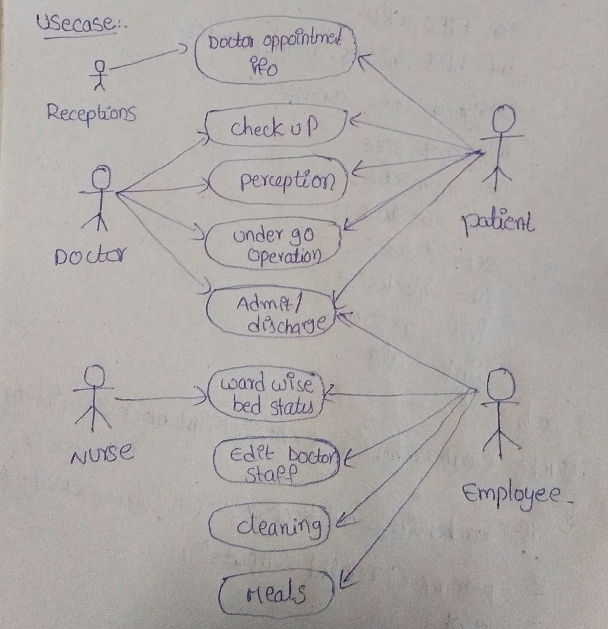 Usecase:-
Doctor appointment
info
Receptions
check up
perception
patient
Doctor
under go
operation
Admit/
discharge
ward wise
bed status
Nurse
Edit Doctor
staff
Employee
cleaning
Meals